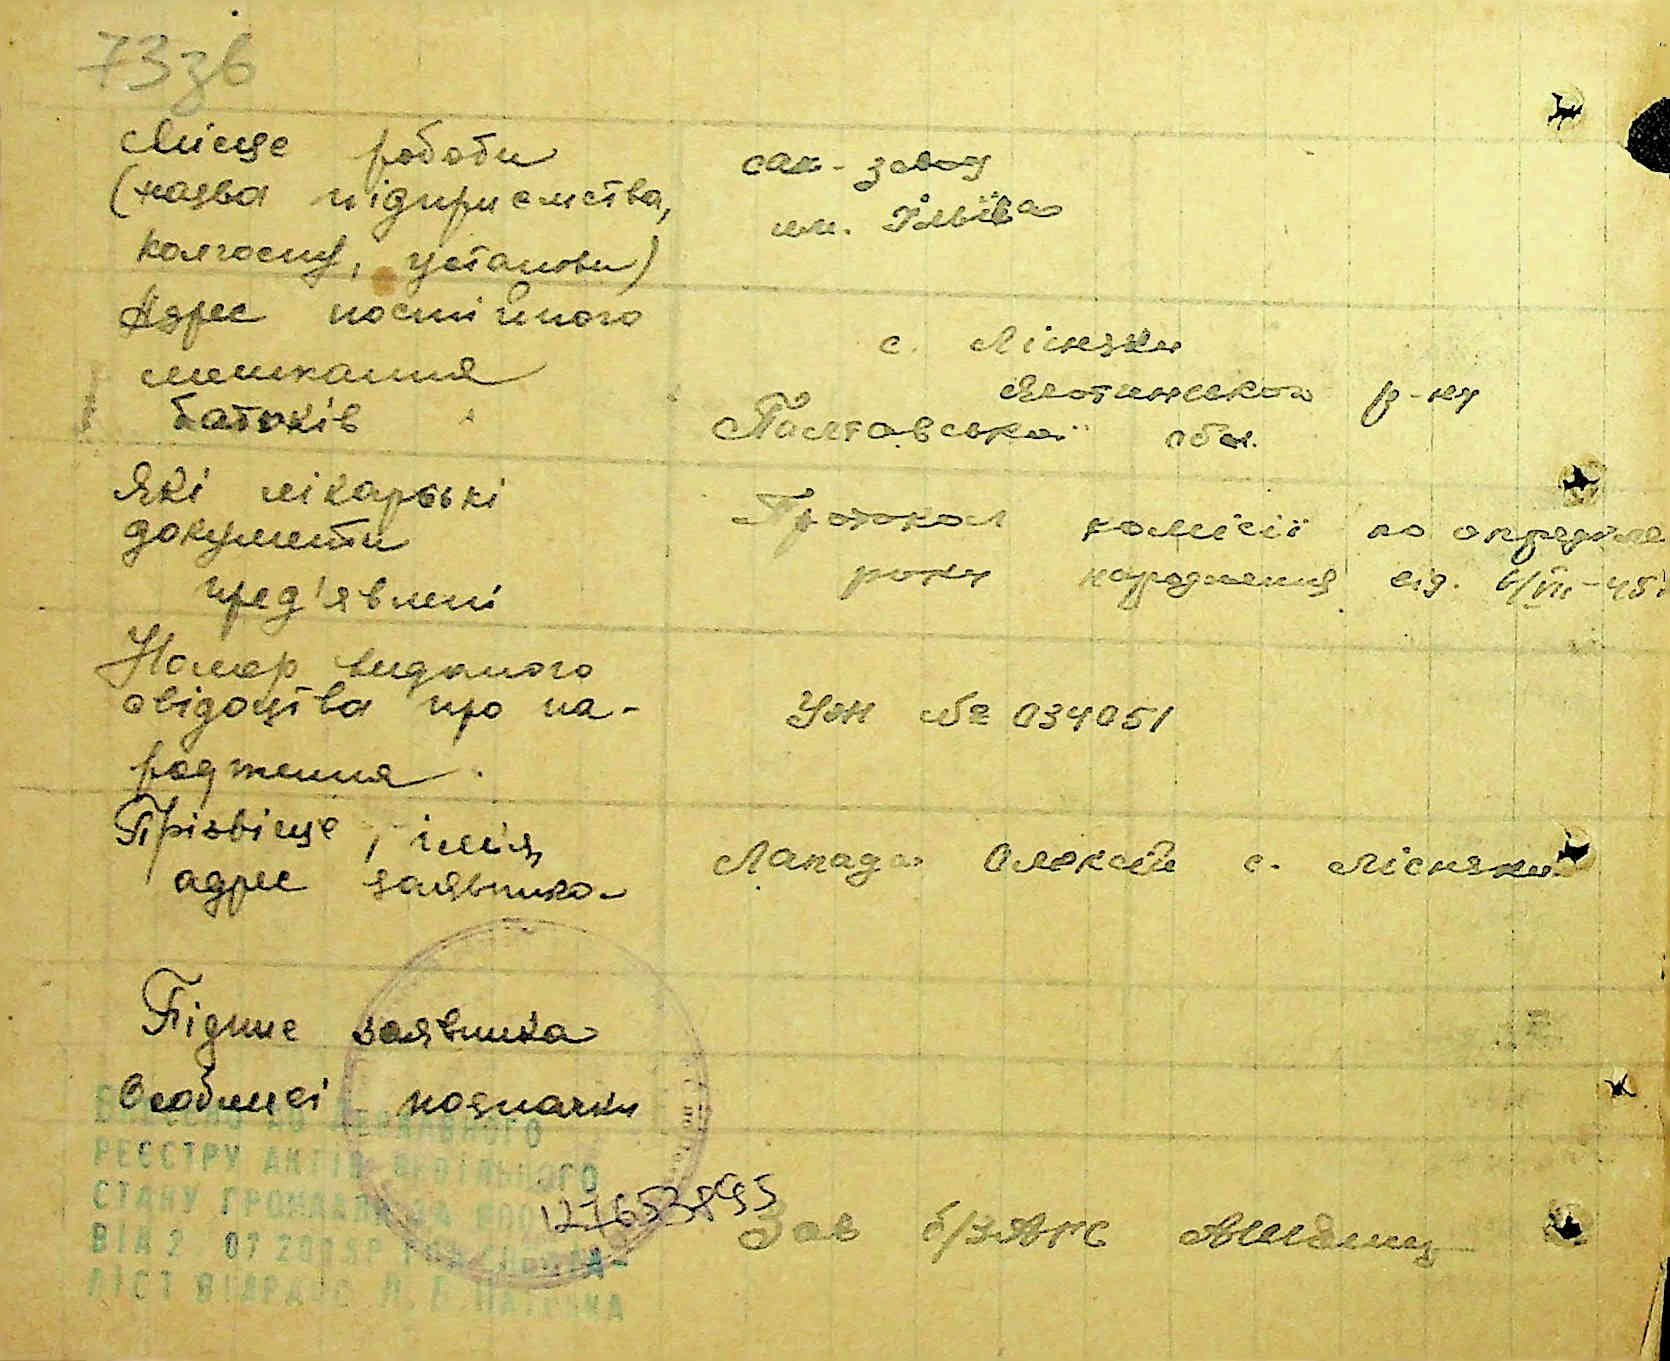 73зв
Місце роботи
(назва підприємства,
колгоспу, установи)
сах-завод
им. Ілліча
Адрес постійного
мешкання
батьків
с. Лісняки
Яготинського р-ну
Полтавської обл.
Які лікарські
документи
пред'явлені
Протокол комісії по определе
року народження від. 6/VII-45
Номер виданого
свідоцтва про на-
родження
УЖ № 034051
Прізвіще, імія,
адрес заявника
Лапада Олексій с. Лісняки
Підпис заявника
Особливі позначки
ВНЕСЕНО ДО ДЕРЖАВНОГО
РЕЄСТРУ АКТІВ ЦИВІЛЬНОГО
СТАНУ ГРОМАДЯН ЗА
1276538495
Зав б/ЗАГС